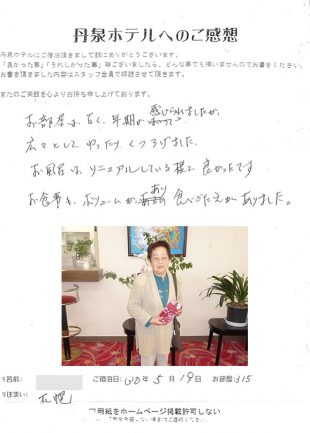 丹泉ホテルへのご感想
丹泉ホテルにご宿泊頂きまして誠にありがとうございます。
「良かった事」「うれしかった事」等ございましたら、どんな事でも構いませんのでお書きください。
お書き頂きました内容はスタッフ全員で拝読させて頂きます。
またのご来館を心よりお待ち申し上げております。
お部屋は、古く、年期が感じられましたが、
広々として、ゆったり、くつろげました。
お風呂は、リニアルしている様で良かったです
お食事も、ボリュームがあり食べごたえがありました。
お名前
ご宿泊日: 年 5 月 19 日 お部屋: 315
お住まい: 札幌
明紙をホームページ掲載許可しない